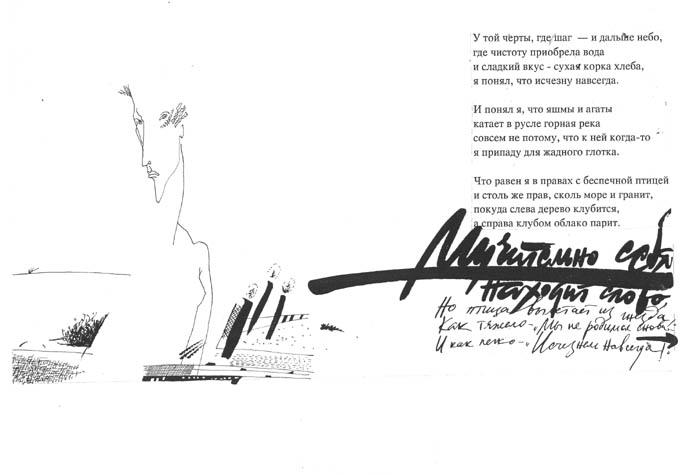 У той черты, где шаг — и дальше небо,
где чистоту приобрела вода
и сладкий вкус - сухая корка хлеба,
я понял, что исчезну навсегда.
И понял я, что яшмы и агаты
катает в русле горная река
совсем не потому, что к ней когда-то
я припаду для жадного глотка.
Что равен я в правах с беспечной птицей
и столь же прав, сколь море и гранит,
покуда слева дерево клубится,
а справа клубом облако парит.
Мучительно себя
Находит слово,
Но птица вылетает из гнезда
Как тяжело - "Мы не родимся снова"
И как легко - "Исчезнем навсегда!"